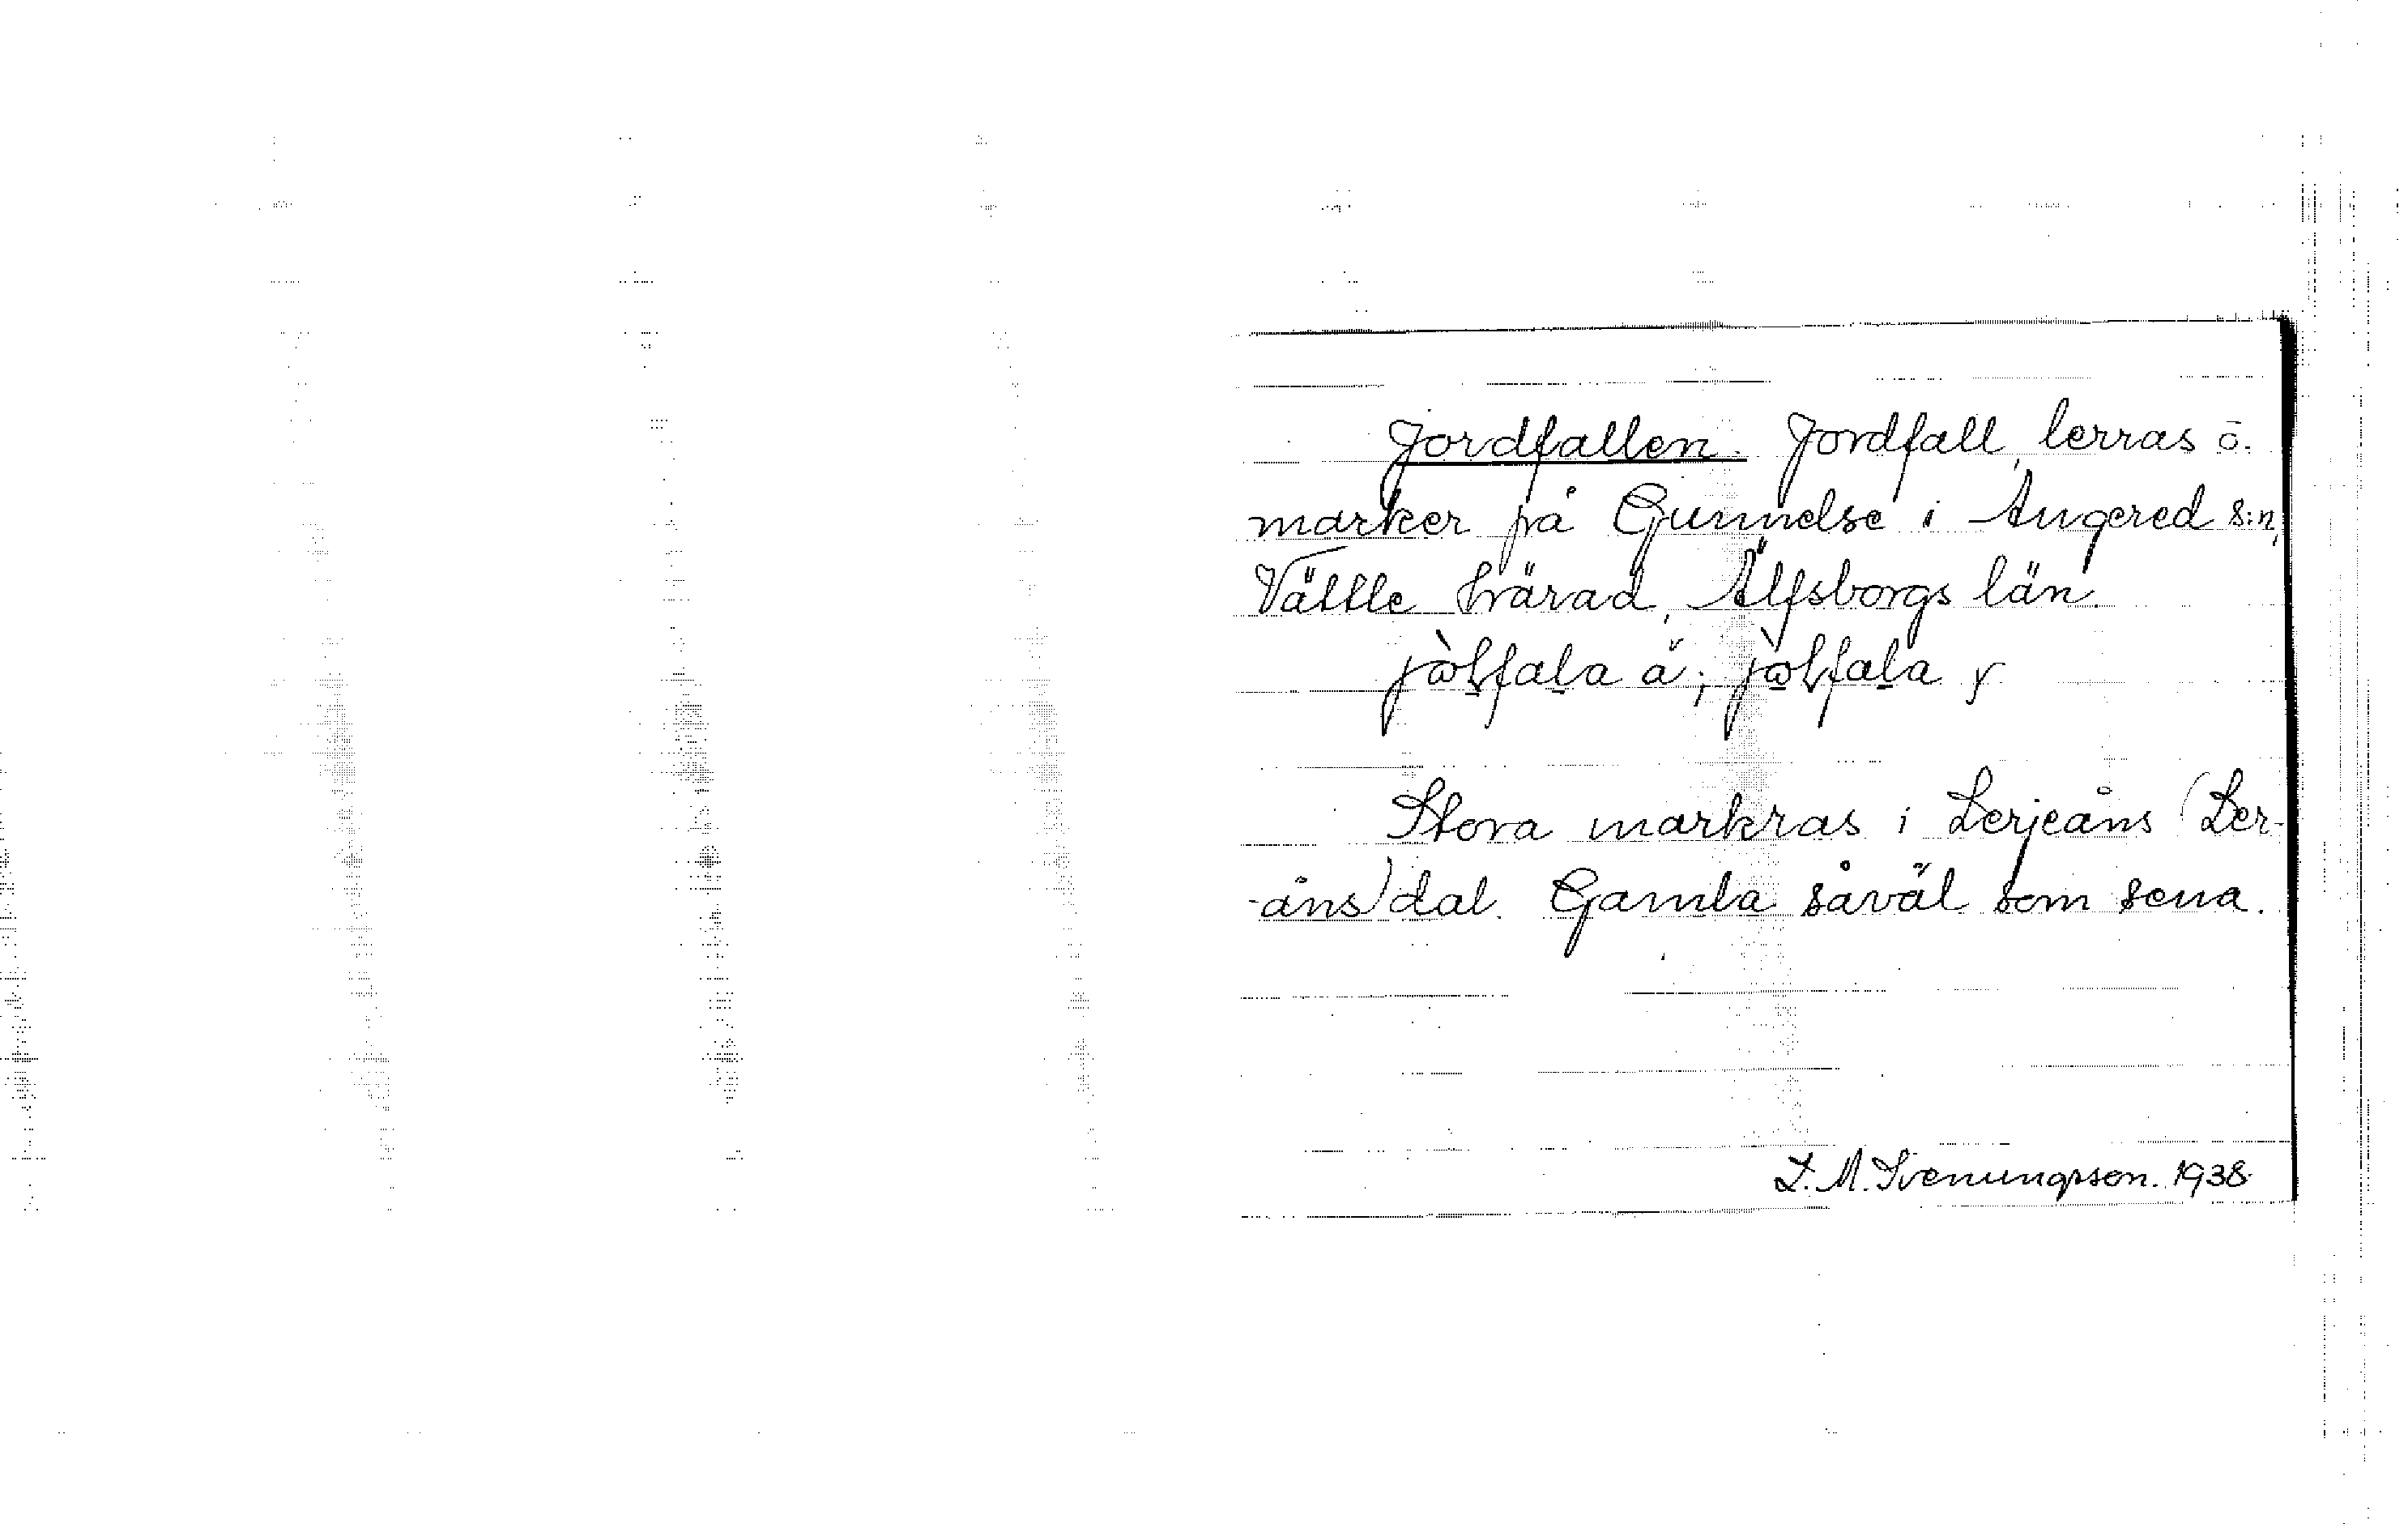 Jordfallen. Jordfall, lerras o.
marker på Gunnelse i Angered s:n,
Vättle härad, Älfsborgs län.
Stora markras i Lerjeåns (Ler-
-åns) dal. Gamla såväl som sena.
L. M. Svenungsson. 1938.